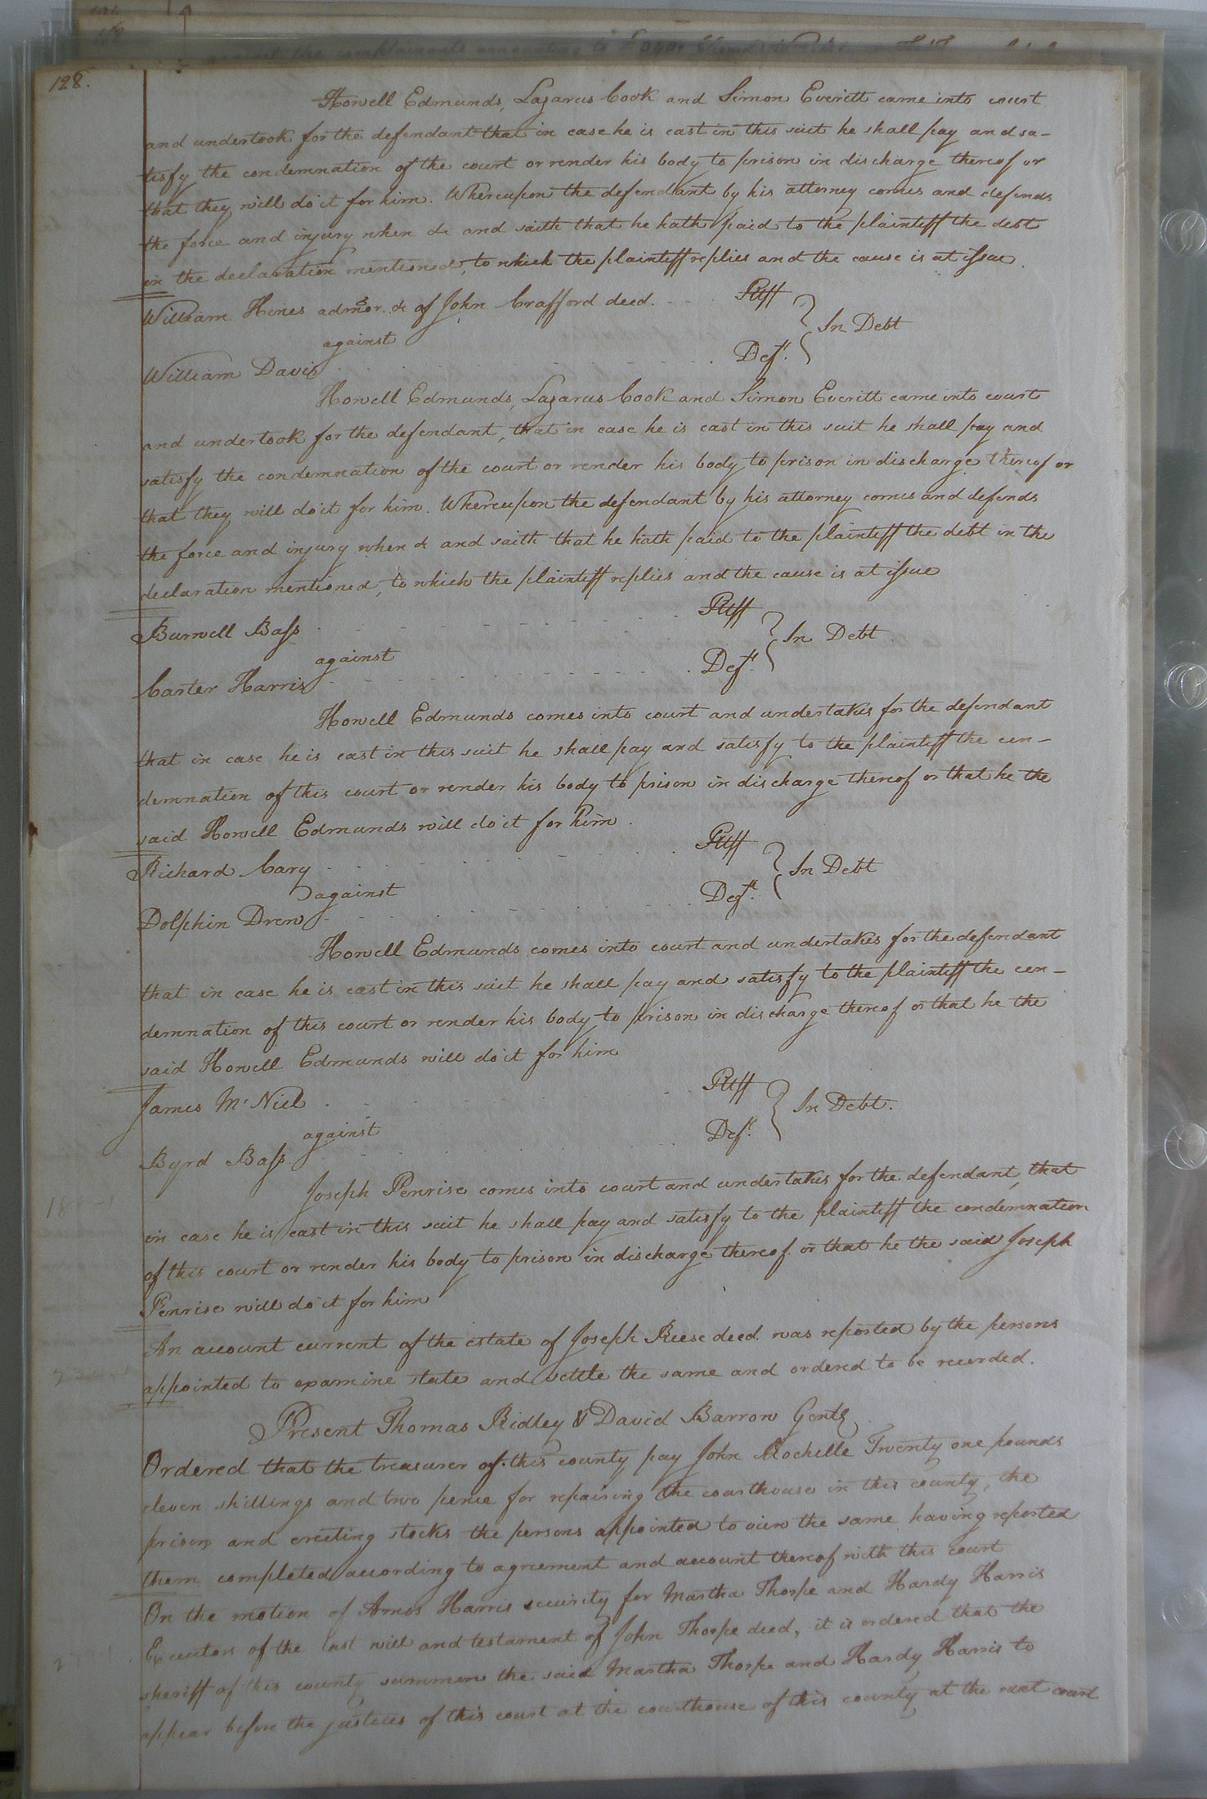 128.
Howell Edmunds, Lazarus Cook and Simon Everitt came into court
and undertook for the defendant that in case he is cast in this suit he shall pay and sa-
tisfy the condemnation of the court or render his body to prison in discharge thereof or
that they will do it for him. Whereupon the defendant by his attorney comes and defends
the force and injury when &c and saith that he hath paid to the plaintiff the debt
in the declaration mentioned, to which the plaintiff replies and the cause is at issue.
William Hines admor. &c of John Crafford decd. Pltff
against In Debt
William Davis Deft.
Howell Edmunds, Lazarus Cook and Simon Everitt came into court
and undertook for the defendant, that in case he is cast in this suit he shall pay and
satisfy the condemnation of the court or render his body to prison in discharge thereof or
that they will do it for him. Whereupon the defendant by his attorney comes and defends
the force and injury when &c and saith that he hath paid to the plaintiff the debt in the
declaration mentioned, to which the plaintiff replies and the cause is at issue
Burwell Bass Pltff
against In Debt
Carter Harris Deft.
Howell Edmunds comes into court and undertakes for the defendant
that in case he is cast in this suit he shall pay and satisfy to the plaintiff the con-
demnation of this court or render his body to prison in discharge thereof or that he the
said Howell Edmunds will do it for him.
Richard Cary Pltff
against In Debt
Dolphin Drew Deft.
Howell Edmunds comes into court and undertakes for the defendant
that in case he is cast in this suit he shall pay and satisfy to the plaintiff the con-
demnation of this court or render his body to prison in discharge thereof or that he the
said Howell Edmunds will do it for him
James McNiel Pltff
against In Debt.
Byrd Bass Deft.
Joseph Penrise comes into court and undertakes for the defendant, that
in case he is cast in this suit he shall pay and satisfy to the plaintiff the condemnation
of this court or render his body to prison in discharge thereof or that he the said Joseph
Penrise will do it for him
An account current of the estate of Joseph Reese decd. was reported by the persons
appointed to examine state and settle the same and ordered to be recorded.
Present Thomas Ridley & David Barrow Gentn
Ordered that the treasurer of this county pay John Rochelle Twenty one pounds
eleven shillings and two pence for repairing the courthouse in this county, the
prison and erecting stocks the persons appointed to view the same having reported
them completed according to agreement and account thereof with this court
On the motion of Amos Harris security for Martha Thorpe and Hardy Harris
Executors of the last will and testament of John Thorpe decd, it is ordered that the
sheriff of this county summon the said Martha Thorpe and Hardy Harris to
appear before the justices of this court at the courthouse of this county at the next court